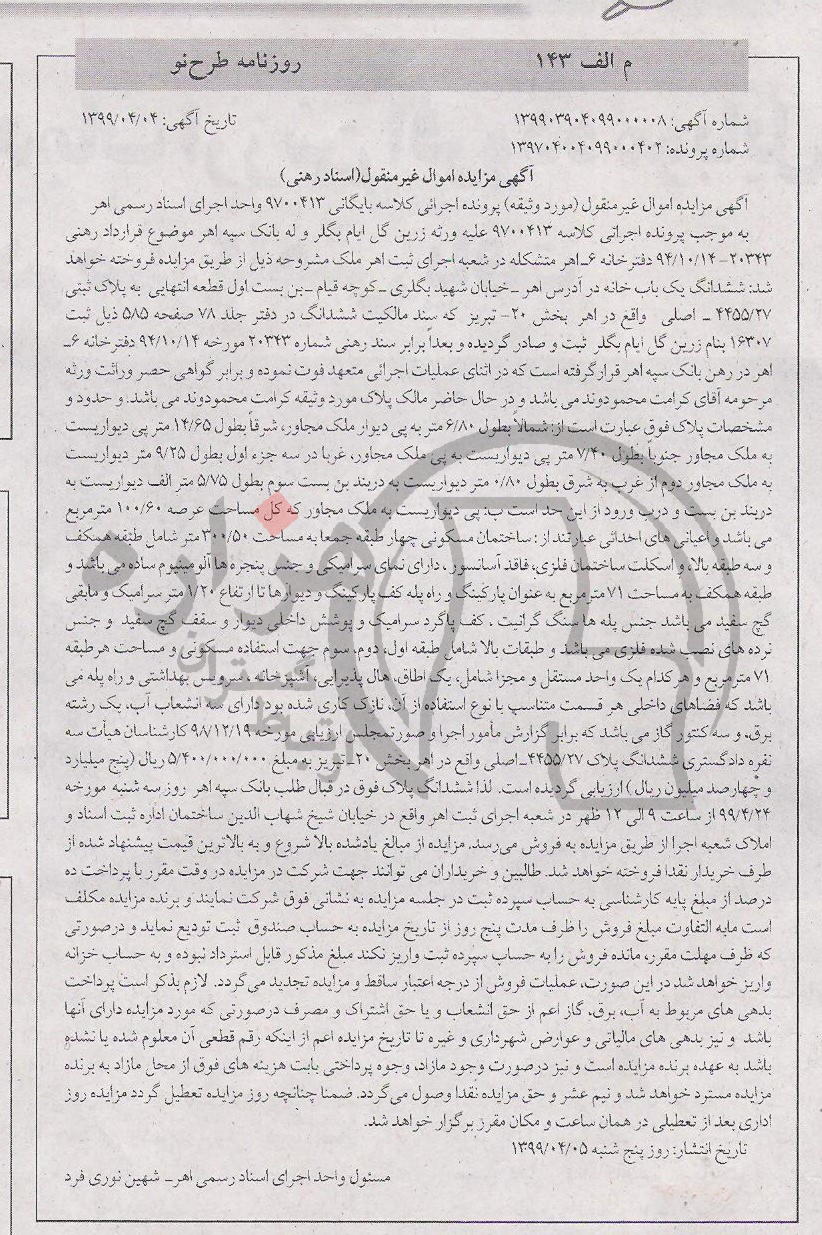 م الف ۱۴۳
روزنامه طرح‌نو
شماره آگهی: ۱۳۹۹۰۳۹۰۴۰۹۹۰۰۰۰۰۸
تاریخ آگهی: ۱۳۹۹/۰۴/۰۴
شماره پرونده: ۱۳۹۷۰۴۰۰۴۰۹۹۰۰۰۴۰۲
آگهی مزایده اموال غیرمنقول(اسناد رهنی)
آگهی مزایده اموال غیرمنقول (مورد وثیقه) پرونده اجرائی کلاسه بایگانی ۹۷۰۰۴۱۳ واحد اجرای اسناد رسمی اهر
به موجب پرونده اجرائی کلاسه ۹۷۰۰۴۱۳ علیه ورثه زرین گل ایام بگلر و له بانک سپه اهر موضوع قرارداد رهنی
۲۰۳۴۳- ۹۴/۱۰/۱۴ دفترخانه ۶ـ اهر متشکله در شعبه اجرای ثبت اهر ملک مشروحه ذیل از طریق مزایده فروخته خواهد
شد: ششدانگ یک باب خانه در آدرس اهر ـ خیابان شهید بگلری ـ کوچه قیام ـ بن بست اول قطعه انتهایی به پلاک ثبتی
۴۴۵۵/۲۷ ـ اصلی واقع در اهر بخش ۲۰- تبریز که سند مالکیت ششدانگ در دفتر جلد ۷۸ صفحه ۵۸۵ ذیل ثبت
۱۶۳۰۷ بنام زرین گل ایام بگلر ثبت و صادر گردیده و بعداً برابر سند رهنی شماره ۲۰۳۴۳ مورخه ۹۴/۱۰/۱۴ دفترخانه ۶ـ
اهر در رهن بانک سپه اهر قرار گرفته است که در اثنای عملیات اجرائی متعهد فوت نموده و برابر گواهی حصر وراثت ورثه
مرحومه آقای کرامت محمودوند می باشد و در حال حاضر مالک پلاک مورد وثیقه کرامت محمودوند می باشد. و حدود و
مشخصات پلاک فوق عبارت است از: شمالاً بطول ۶/۸۰ متر به پی دیوار ملک مجاور، شرقاً بطول ۱۴/۶۵ متر پی دیواریست
به ملک مجاور جنوباً بطول ۷/۴۰ متر پی دیواریست به پی ملک مجاور، غربا در سه جزء اول بطول ۹/۲۵ متر دیواریست
به ملک مجاور دوم از غرب به شرق بطول ۰/۸۰ متر دیواریست به دربند بن بست سوم بطول ۵/۷۵ متر الف دیواریست به
دربند بن بست و درب ورود از این حد است ب: پی دیواریست به ملک مجاور که کل مساحت عرصه ۱۰۰/۶۰ مترمربع
می باشد و اعیانی های احداثی عبارتند از : ساختمان مسکونی چهار طبقه جمعا به مساحت ۳۰۰/۵۰ متر شامل طبقه همکف
و سه طبقه بالا، و اسکلت ساختمان فلزی، فاقد آسانسور ، دارای نمای سرامیکی و جنس پنجره ها آلومینیوم ساده می باشد و
طبقه همکف به مساحت ۷۱ مترمربع به عنوان پارکینگ و راه پله کف پارکینگ و دیوارها تا ارتفاع ۱/۲۰ متر سرامیک و مابقی
گچ سفید می باشد جنس پله ها سنگ گرانیت ، کف پاگرد سرامیک و پوشش داخلی دیوار و سقف گچ سفید و جنس
نرده های نصب شده فلزی می باشد و طبقات بالا شامل طبقه اول، دوم، سوم جهت استفاده مسکونی و مساحت هرطبقه
۷۱ مترمربع و هرکدام یک واحد مستقل و مجزا شامل، یک اطاق، هال پذیرایی، آشپزخانه ، سرویس بهداشتی و راه پله می
باشد که فضاهای داخلی هر قسمت متناسب با نوع استفاده از آن، نازک کاری شده بود دارای سه انشعاب آب، یک رشته
برق، و سه کنتور گاز می باشد که برابر گزارش مأمور اجرا و صورتمجلس ارزیابی مورخه ۹۸/۱۲/۱۹ کارشناسان هیأت سه
نفره دادگستری ششدانگ پلاک ۴۴۵۵/۲۷ـ اصلی واقع در اهر بخش ۲۰ـ تبریز به مبلغ ۵/۴۰۰/۰۰۰/۰۰۰ ریال (پنج میلیارد
و چهارصد میلیون ریال) ارزیابی گردیده است. لذا ششدانگ پلاک فوق در قبال طلب بانک سپه اهر روز سه شنبه مورخه
۹۹/۴/۲۴ از ساعت ۹ الی ۱۲ ظهر در شعبه اجرای ثبت اهر واقع در خیابان شیخ شهاب الدین ساختمان اداره ثبت اسناد و
املاک شعبه اجرا از طریق مزایده به فروش می‌رسد. مزایده از مبالغ یادشده بالا شروع و به بالاترین قیمت پیشنهاد شده از
طرف خریدار نقدا فروخته خواهد شد. طالبین و خریداران می توانند جهت شرکت در مزایده در وقت مقرر با پرداخت ده
درصد از مبلغ پایه کارشناسی به حساب سپرده ثبت در جلسه مزایده به نشانی فوق شرکت نمایند و برنده مزایده مکلف
است مابه التفاوت مبلغ فروش را ظرف مدت پنج روز از تاریخ مزایده به حساب صندوق ثبت تودیع نماید و درصورتی
که ظرف مهلت مقرر، مانده فروش را به حساب سپرده ثبت واریز نکند مبلغ مذکور قابل استرداد نبوده و به حساب خزانه
واریز خواهد شد در این صورت، عملیات فروش از درجه اعتبار ساقط و مزایده تجدید می‌گردد. لازم بذکر است پرداخت
بدهی های مربوط به آب، برق، گاز اعم از حق انشعاب و یا حق اشتراک و مصرف درصورتی که مورد مزایده دارای آنها
باشد و نیز بدهی های مالیاتی و عوارض شهرداری و غیره تا تاریخ مزایده اعم از اینکه رقم قطعی آن معلوم شده یا نشده
باشد به عهده برنده مزایده است و نیز درصورت وجود مازاد، وجوه پرداختی بابت هزینه های فوق از محل مازاد به برنده
مزایده مسترد خواهد شد و نیم عشر و حق مزایده نقدا وصول می‌گردد. ضمنا چنانچه روز مزایده تعطیل گردد مزایده روز
اداری بعد از تعطیلی در همان ساعت و مکان مقرر برگزار خواهد شد.
تاریخ انتشار: روز پنج شنبه ۱۳۹۹/۰۴/۰۵
مسئول واحد اجرای اسناد رسمی اهر ـ شهین نوری فرد
هزاره